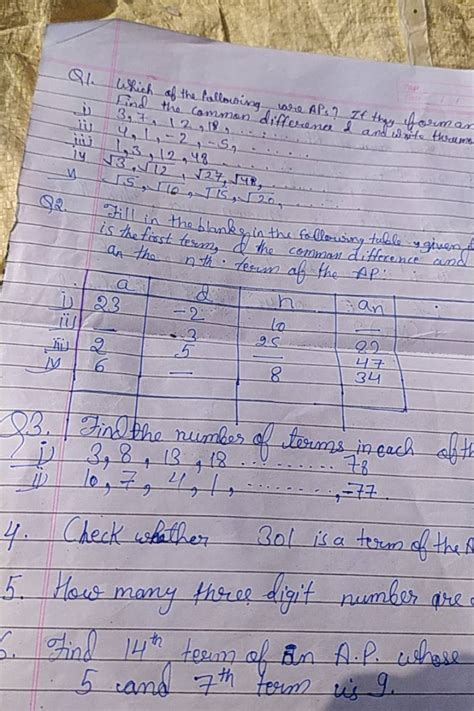 Q1. Which of the following are APs? If they form an
Find the common difference d and write three mor
i) 3, 7, 12, 18, ........
ii) 4, 1, -2, -5, ........
iii) 1, 3, 12, 48 ........
iv √3, √12, √27, √48, ........
v √5, √10, √15, √20, ........
Q2. Fill in the blanks in the following table, given
is the first term, d the common difference and
an the nth term of the AP:
a d n an
i) 23 -2 10 —
ii) — -3 25 22
iii) 2 5 — 47
iv) 6 — 8 34
Q3. Find the number of terms in each of th
i) 3, 8, 13, 18 ........ 78
ii) 10, 7, 4, 1, ........, -77.
4. Check whether 301 is a term of the A
5. How many three digit number are
6. Find 14th term of an A.P. whose
5 and 7th term is 9.